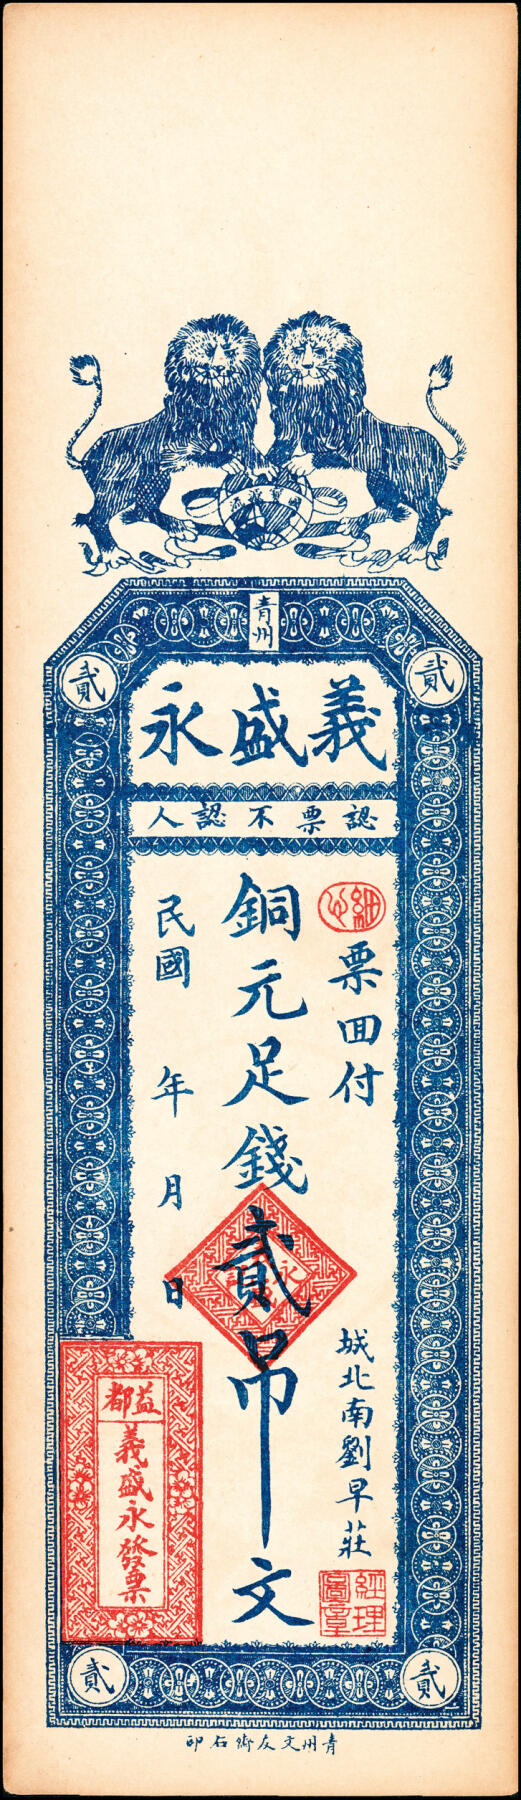 青州
貳
貳
義盛永
認票不認人
細心
票回付
城北南劉早莊
經理圖章
銅元足錢貳吊文
民國 年 月 日
益都
義盛永發票
貳
貳
青州文友街石印